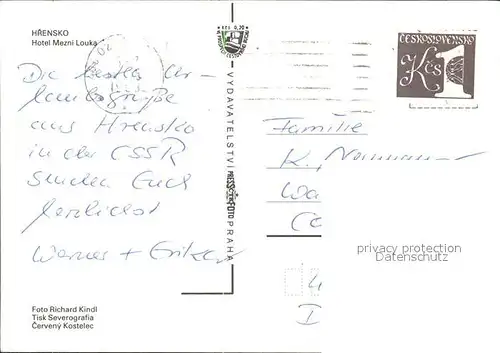 HŘENSKO
Hotel Mezní Louka
Die besten Ur-
laubsgrüße
aus Hrensko
in der CSSR
senden Euch
herzlichst
Werner +
Foto Richard Kindl
Tisk Severografia
Červený Kostelec
VYDAVATELSTVÍ PRESSFOTO PRAHA
ČESKOSLOVENSKO
Kčs 1
Familie
K. Neumann
privacy protection
Datenschutz